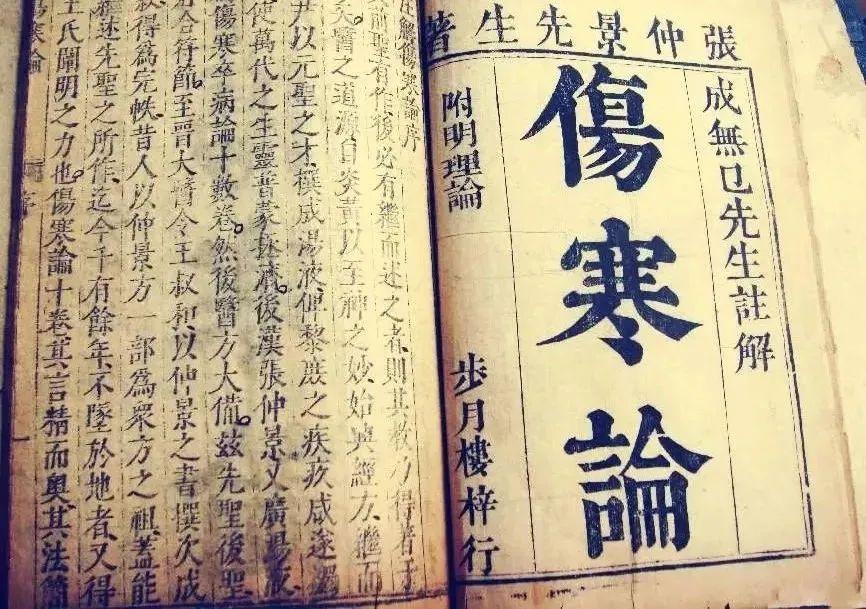 張仲景先生著
成無已先生註解
傷寒論
附明理論
步月樓梓行
解傷寒論序
前聖有作後必有繼而述之者則其教乃得著于
矣醫之道源自炎黃以至神之妙始興經方繼而
尹以元聖之才撰成湯液俾黎庶之疾疚咸遂蠲
使萬代之生靈普蒙拯濟後漢張仲景又廣湯液
傷寒卒病論十數卷然後醫方大備茲先聖後聖
若合符節至晉太醫令王叔和以仲景之書撰次成
敘得為完帙昔人以仲景方一部為衆方之祖蓋能
繼述先聖之所作迄今千有餘年不墜於地者又得
王氏闡明之力也傷寒論十卷其言精而奧其法簡
傷寒論 序